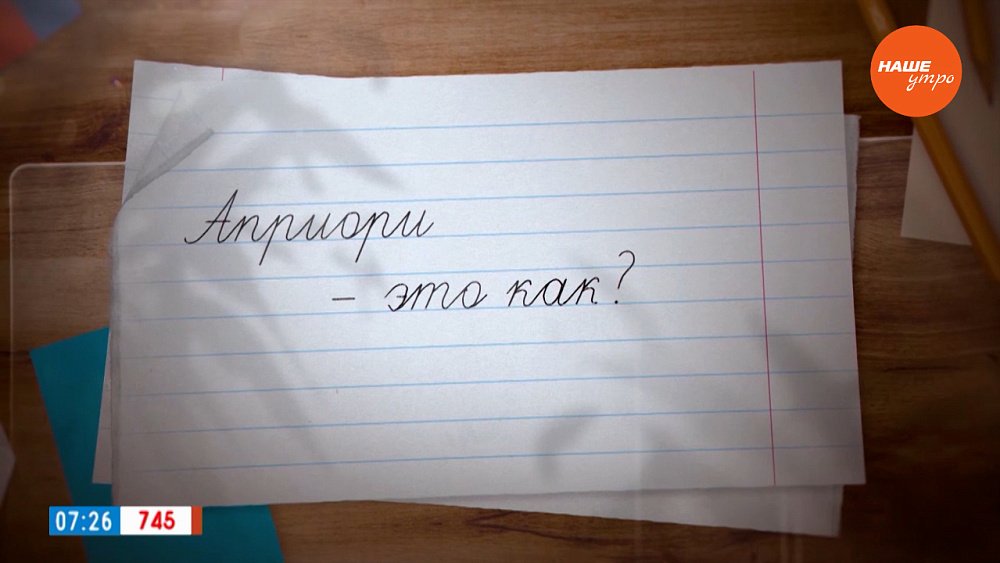 НАШЕ
утро
Априори
– это как?
07:26 745